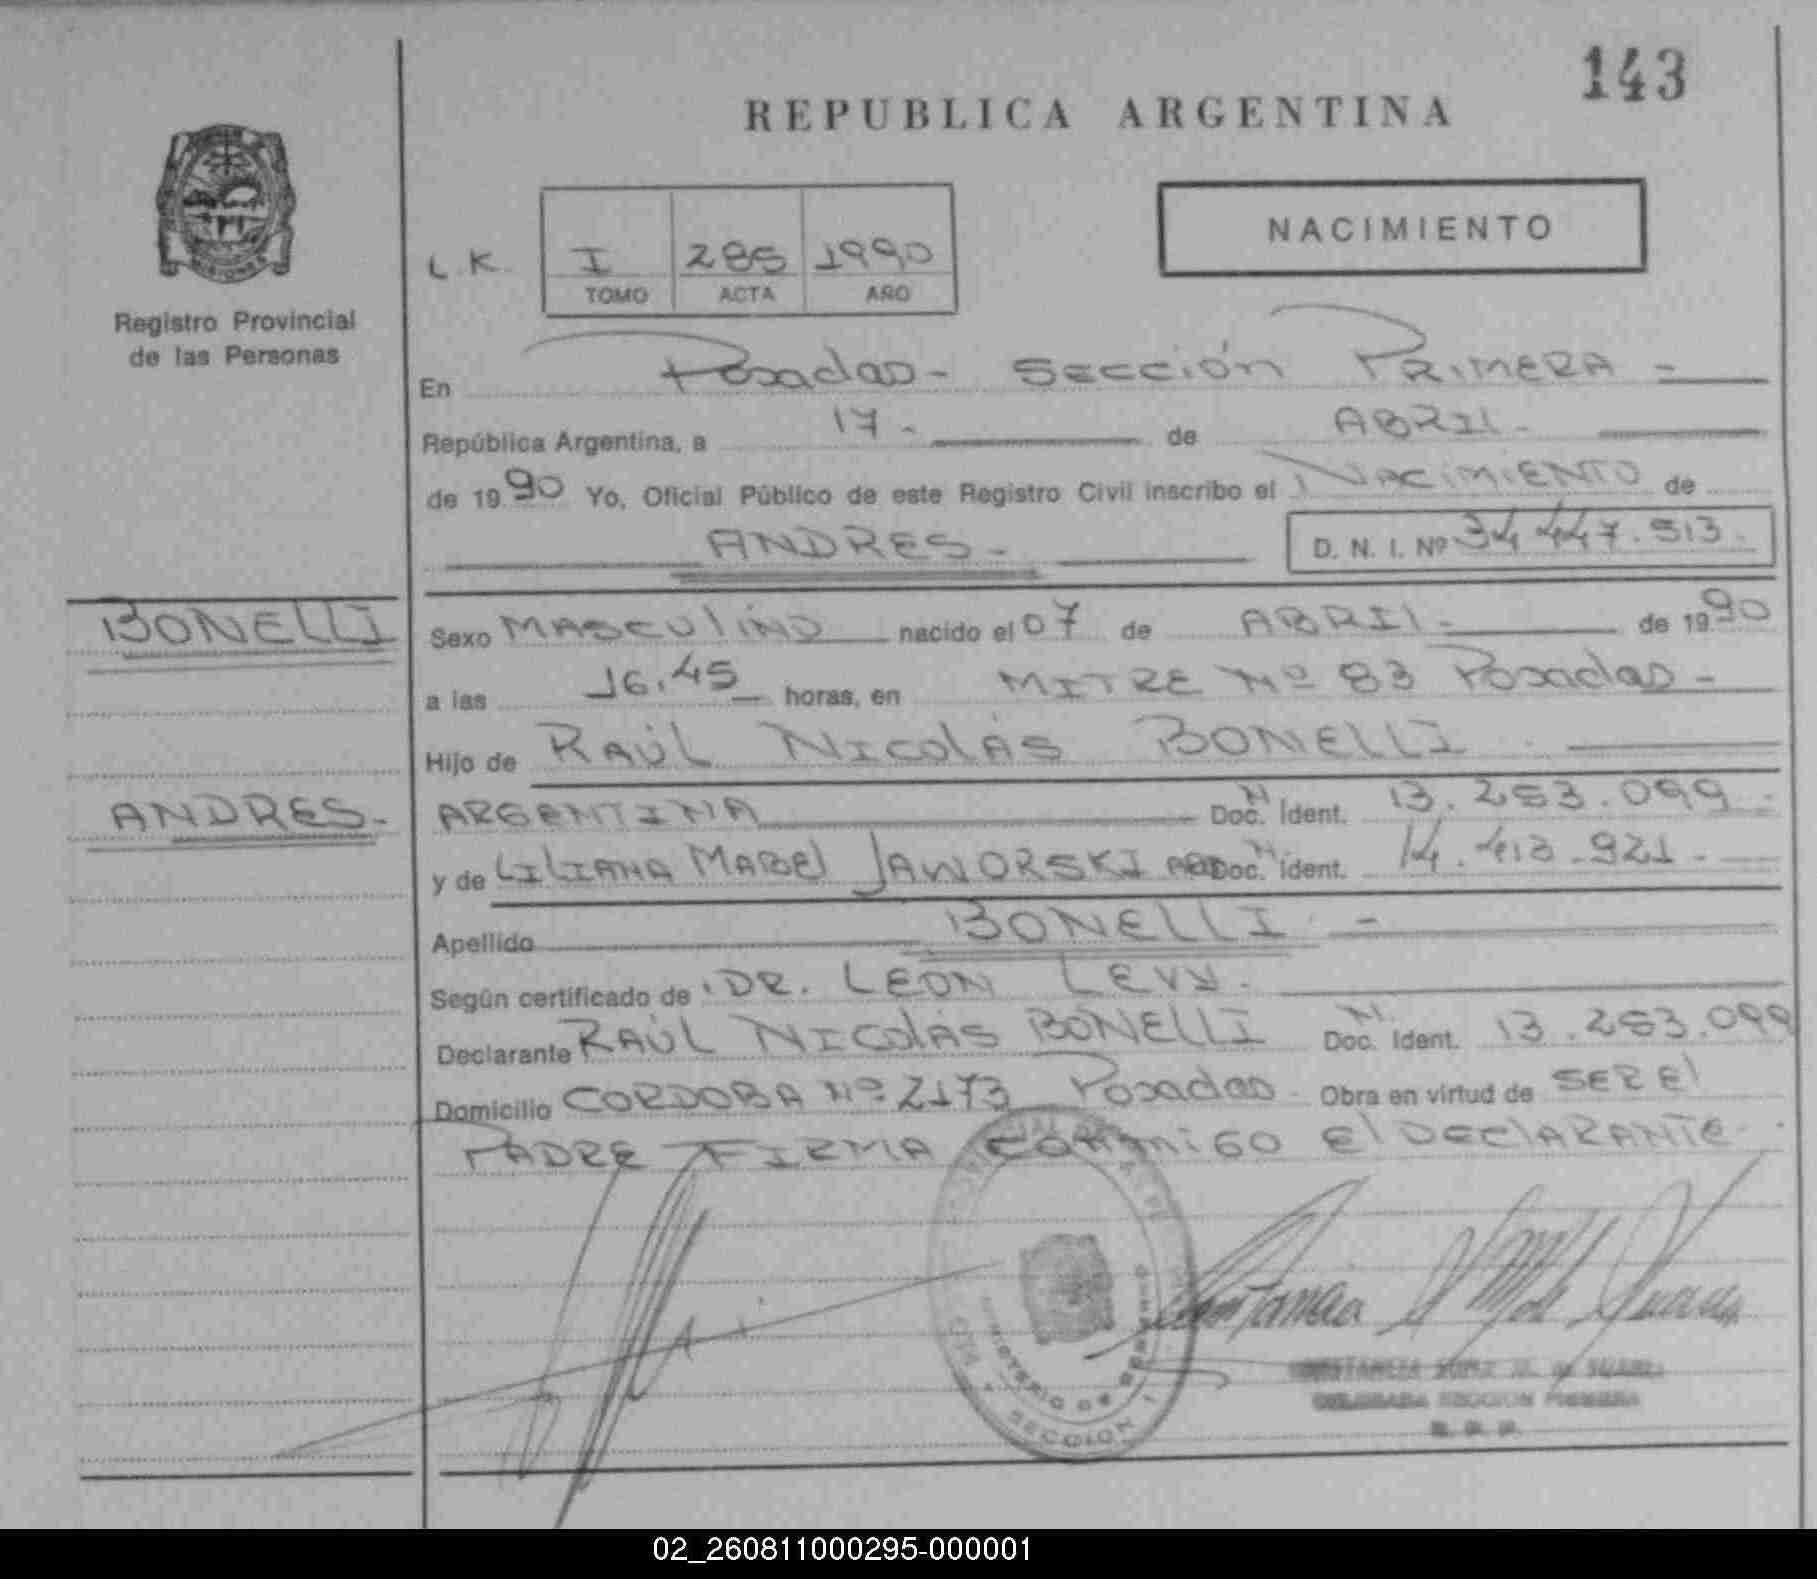 143
REPUBLICA ARGENTINA
NACIMIENTO
L.K. I 285 1990
TOMO ACTA AÑO
MISIONES
Registro Provincial
de las Personas
En Posadas - Sección PRIMERA -
República Argentina, a 17 - de ABRIL -
de 1990 Yo, Oficial Público de este Registro Civil inscribo el NACIMIENTO de
ANDRES - D. N. I. Nº 34.447.513.
BONELLI
Sexo MASCULINO nacido el 07 de ABRIL - de 1990
a las 16,45 horas, en MITRE Nº 83 Posadas -
Hijo de RAÚL NICOLÁS BONELLI
ANDRES -
ARGENTINA Doc. N. Ident. 13.253.099 -
y de LILIANA MABEL JAWORSKI ARG Doc. N. Ident. 14.413.921 -
Apellido BONELLI -
Según certificado de DR. LEON LEVY.
Declarante RAÚL NICOLÁS BONELLI Doc. N. Ident. 13.253.099
Domicilio CORDOBA Nº 2173 Posadas - Obra en virtud de SER El
PADRE FIRMA CONMIGO El DECLARANTE -
SECCION 1
DELEGADA SECCION PRIMERA
R. P. P.
02_260811000295-000001